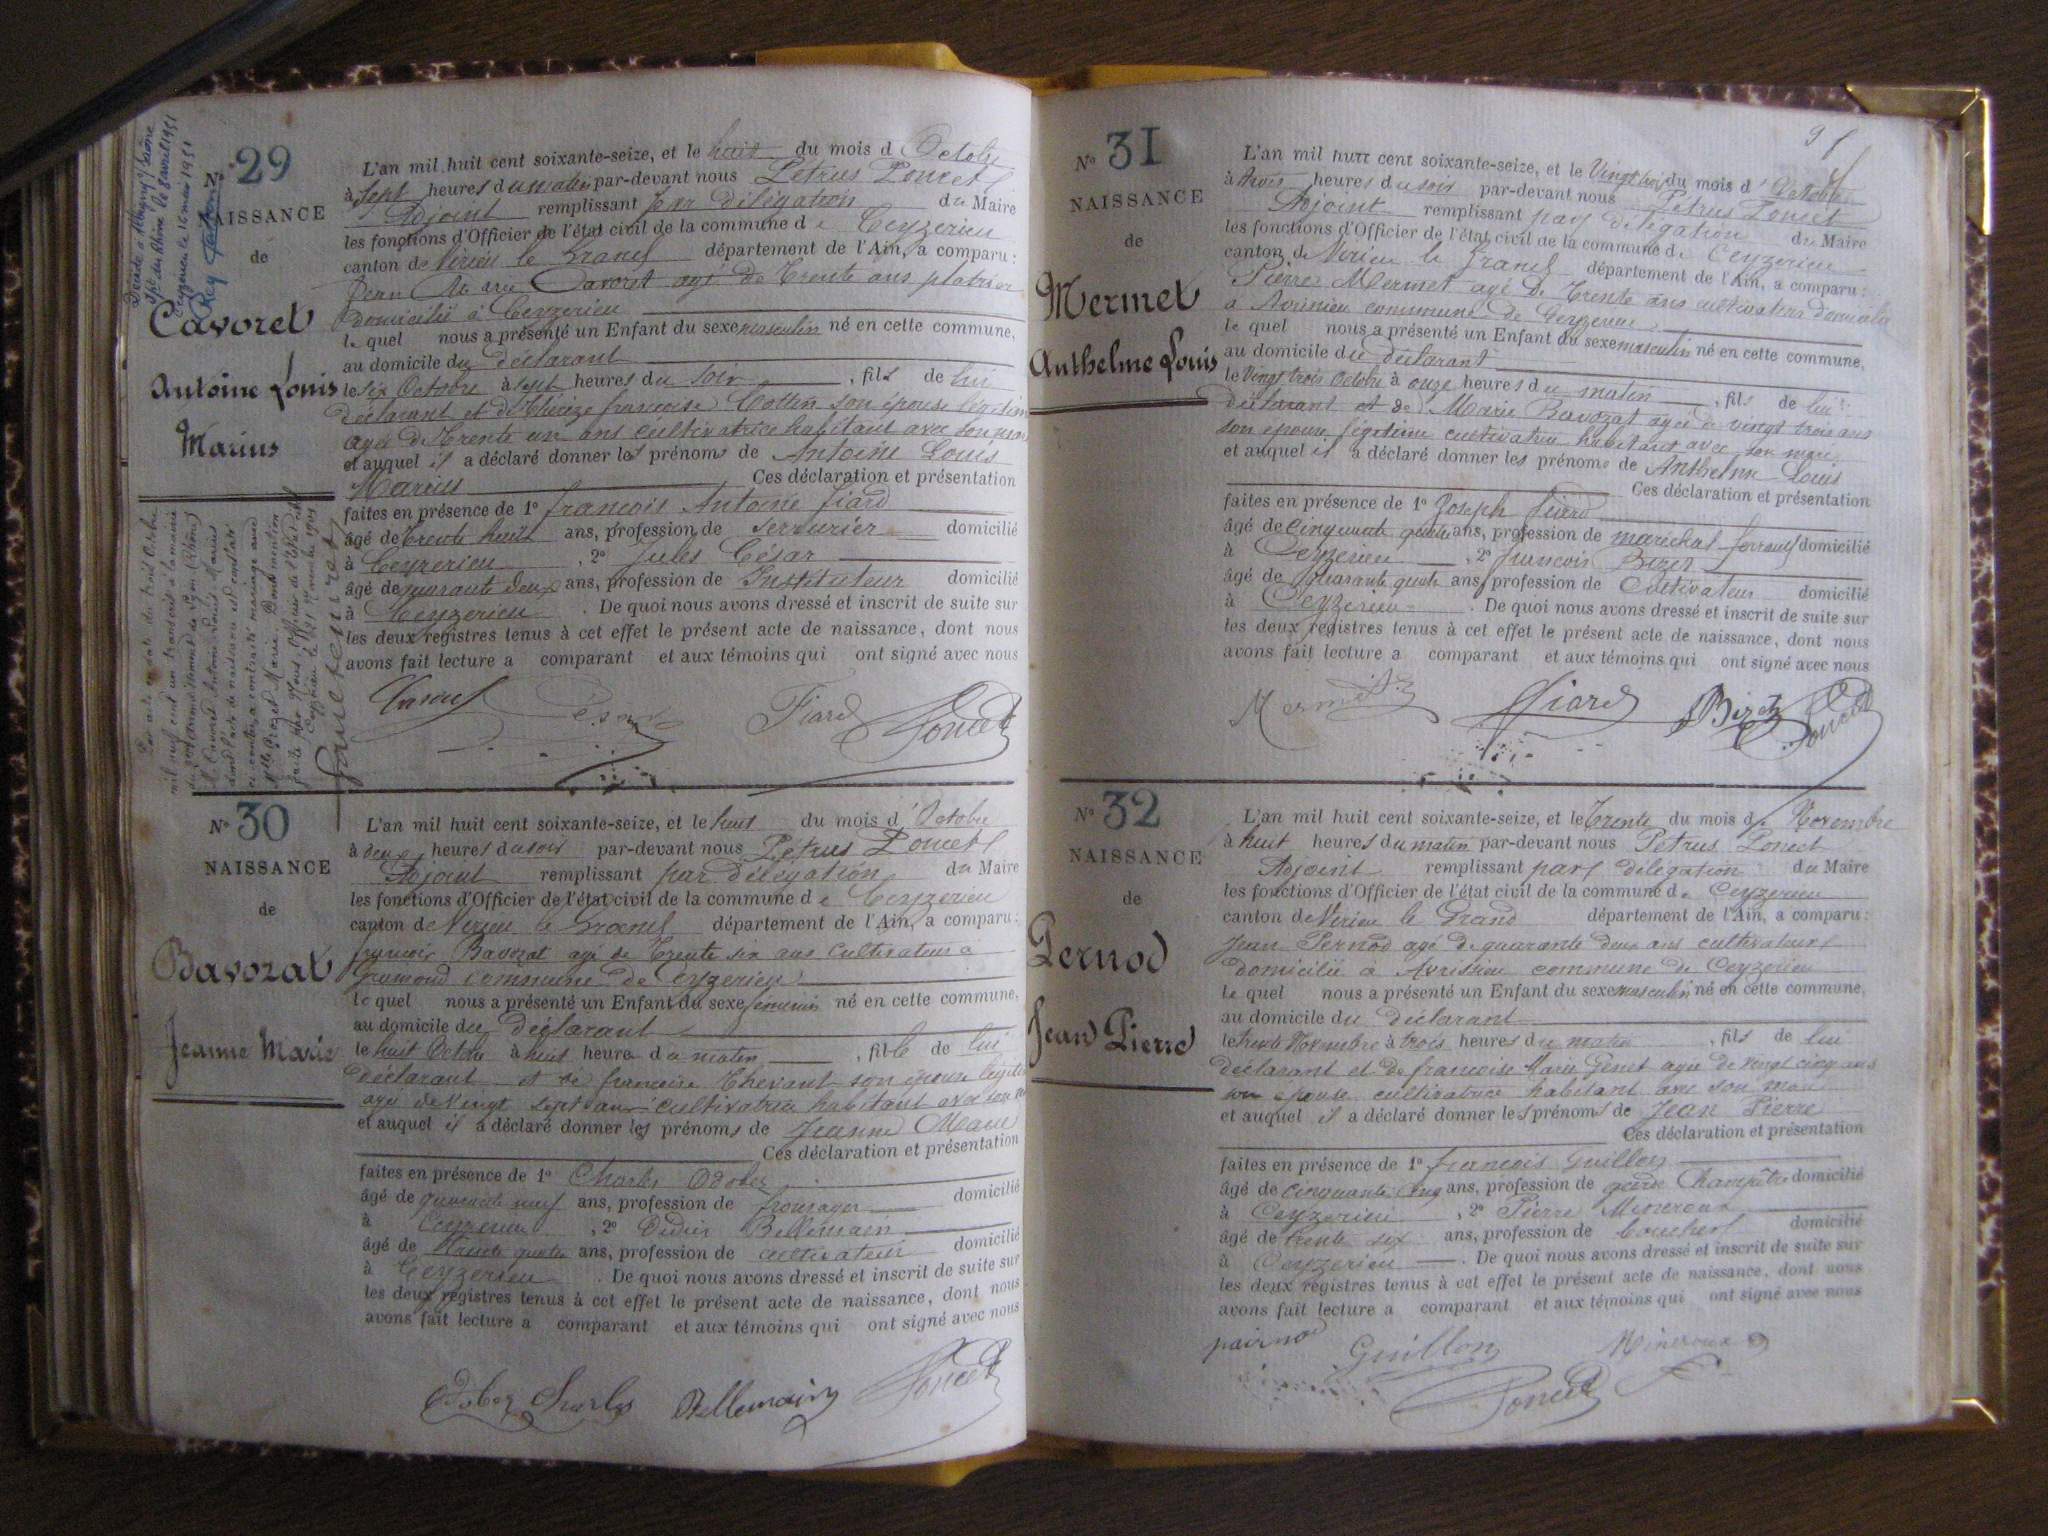 N° 29
NAISSANCE
de
Cavoret
Antoine Louis
Marius
L'an mil huit cent soixante-seize, et le huit du mois d Octobre
à sept heures du matin par-devant nous Petrus Poncet
Adjoint remplissant par délégation du Maire
les fonctions d'Officier de l'état civil de la commune de Ceyzerieu
canton de Virieu le Grand département de l'Ain, a comparu :
Jean Marie Cavoret agé de Trente ans platrier
domicilié à Ceyzerieu
le quel nous a présenté un Enfant du sexe masculin né en cette commune,
au domicile du déclarant
le six Octobre à sept heures du soir, fils de lui
déclarant et de Thérèze françoise Cottin son épouse légitime
agée de Trente un ans cultivatrice habitant avec son mari
et auquel il a déclaré donner les prénoms de Antoine Louis
Marius Ces déclaration et présentation
faites en présence de 1° françois Antoine fiard
âgé de trente huit ans, profession de serrurier domicilié
à Ceyzerieu, 2° Jules César
âgé de quarante deux ans, profession de Instituteur domicilié
à Ceyzerieu. De quoi nous avons dressé et inscrit de suite sur
les deux registres tenus à cet effet le présent acte de naissance, dont nous
avons fait lecture a comparant et aux témoins qui ont signé avec nous
César Fiard Poncet
N° 30
NAISSANCE
de
Bavozat
Jeanne Marie
L'an mil huit cent soixante-seize, et le huit du mois d'Octobre
à deux heures du soir par-devant nous Petrus Poncet
Adjoint remplissant par délégation du Maire
les fonctions d'Officier de l'état civil de la commune de Ceyzerieu
canton de Virieu le Grand département de l'Ain, a comparu :
françois Bavozat agé de Trente six ans cultivateur à
commune de Ceyzerieu
le quel nous a présenté un Enfant du sexe féminin né en cette commune,
au domicile du déclarant
le huit Octobre à huit heures du matin, fille de lui
déclarant et de françoise Thevant son épouse légitime
agée de vingt sept ans cultivatrice habitant avec son
et auquel il a déclaré donner les prénoms de Jeanne Marie
Ces déclaration et présentation
faites en présence de 1° Charles Odobez
âgé de quarante neuf ans, profession de fromager domicilié
à Ceyzerieu, 2° Didier Bellemain
âgé de trente quatre ans, profession de cultivateur domicilié
à Ceyzerieu. De quoi nous avons dressé et inscrit de suite sur
les deux registres tenus à cet effet le présent acte de naissance, dont nous
avons fait lecture a comparant et aux témoins qui ont signé avec nous
Odobez Bellemain Poncet
91
N° 31
NAISSANCE
de
Mermet
Anthelme Louis
L'an mil huit cent soixante-seize, et le Vingt trois du mois d'Octobre
à trois heures du soir par-devant nous Petrus Poncet
Adjoint remplissant par délégation du Maire
les fonctions d'Officier de l'état civil de la commune de Ceyzerieu
canton de Virieu le Grand département de l'Ain, a comparu :
Pierre Mermet agé de Trente ans cultivateur domicilié
à commune de Ceyzerieu
le quel nous a présenté un Enfant du sexe masculin né en cette commune,
au domicile du déclarant
le Vingt trois Octobre à onze heures du matin, fils de lui
déclarant et de Marie Bavozat agée de vingt trois ans
son épouse légitime cultivatrice habitant avec son mari
et auquel il a déclaré donner les prénoms de Anthelme Louis
Ces déclaration et présentation
faites en présence de 1° Joseph fiard
âgé de cinquante quatre ans, profession de maréchal ferrant domicilié
à Ceyzerieu, 2° françois Bizet
âgé de quarante quatre ans, profession de Cultivateur domicilié
à Ceyzerieu. De quoi nous avons dressé et inscrit de suite sur
les deux registres tenus à cet effet le présent acte de naissance, dont nous
avons fait lecture a comparant et aux témoins qui ont signé avec nous
Mermet Fiard Bizet Poncet
N° 32
NAISSANCE
de
Pernod
Jean Pierre
L'an mil huit cent soixante-seize, et le Trente du mois de Novembre
à huit heures du matin par-devant nous Petrus Poncet
Adjoint remplissant par délégation du Maire
les fonctions d'Officier de l'état civil de la commune de Ceyzerieu
canton de Virieu le Grand département de l'Ain, a comparu :
Jean Pernod agé de quarante deux ans cultivateur
domicilié à Avrissieu commune de Ceyzerieu
le quel nous a présenté un Enfant du sexe masculin né en cette commune,
au domicile du déclarant
le trente Novembre à trois heures du matin, fils de lui
déclarant et de françoise Marie Genet agée de vingt cinq ans
son épouse cultivatrice habitant avec son mari
et auquel il a déclaré donner les prénoms de Jean Pierre
Ces déclaration et présentation
faites en présence de 1° francois Guillon
âgé de cinquante cinq ans, profession de garde Champêtre domicilié
à Ceyzerieu, 2° Pierre Mineroux
âgé de trente six ans, profession de boucher domicilié
à Ceyzerieu. De quoi nous avons dressé et inscrit de suite sur
les deux registres tenus à cet effet le présent acte de naissance, dont nous
avons fait lecture a comparant et aux témoins qui ont signé avec nous
pairnod Guillon Mineroux
Poncet